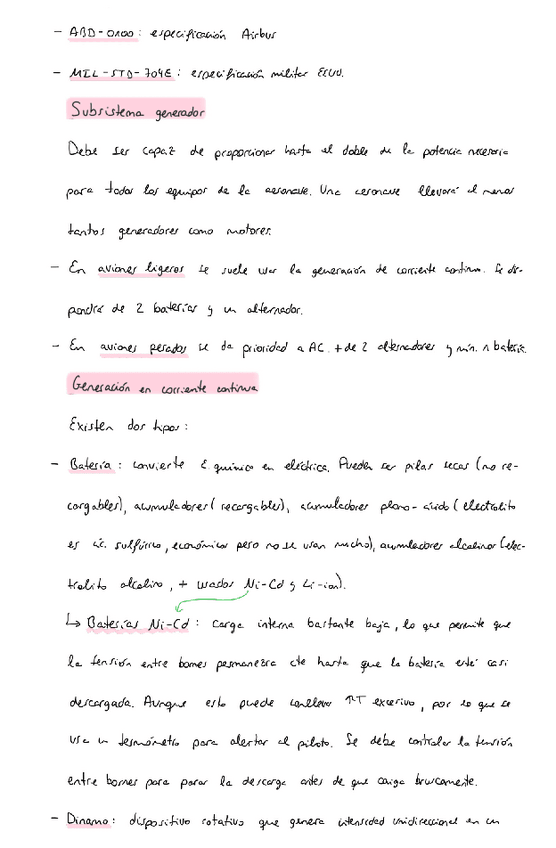 - ABD-0100: especificación Airbus
- MIL-STD-704E: especificación militar EEUU.
Subsistema generador
Debe ser capaz de proporcionar hasta el doble de la potencia necesaria
para todos los equipos de la aeronave. Una aeronave llevará al menos
tantos generadores como motores.
- En aviones ligeros se suele usar la generación de corriente continua. Se dis-
pondrá de 2 baterías y un alternador.
- En aviones pesados se da prioridad a AC. + de 2 alternadores y mín. n batería.
Generación en corriente continua
Existen dos tipos:
- Batería: convierte E química en eléctrica. Pueden ser pilas secas (no re-
cargables), acumuladores (recargables), acumuladores plomo-ácido (electrolito
es ác. sulfúrico, económicos pero no se usan mucho), acumuladores alcalinos (elec-
trolito alcalino, + usados Ni-Cd y Li-ion).
↳ Baterías Ni-Cd: carga interna bastante baja, lo que permite que
la tensión entre bornes permanezca cte hasta que la batería esté casi
descargada. Aunque esto puede conllevar ↑T excesivo, por lo que se
usa un termómetro para alertar al piloto. Se debe controlar la tensión
entre bornes para parar la descarga antes de que caiga bruscamente.
- Dinamo: dispositivo rotativo que genera intensidad unidireccional en un